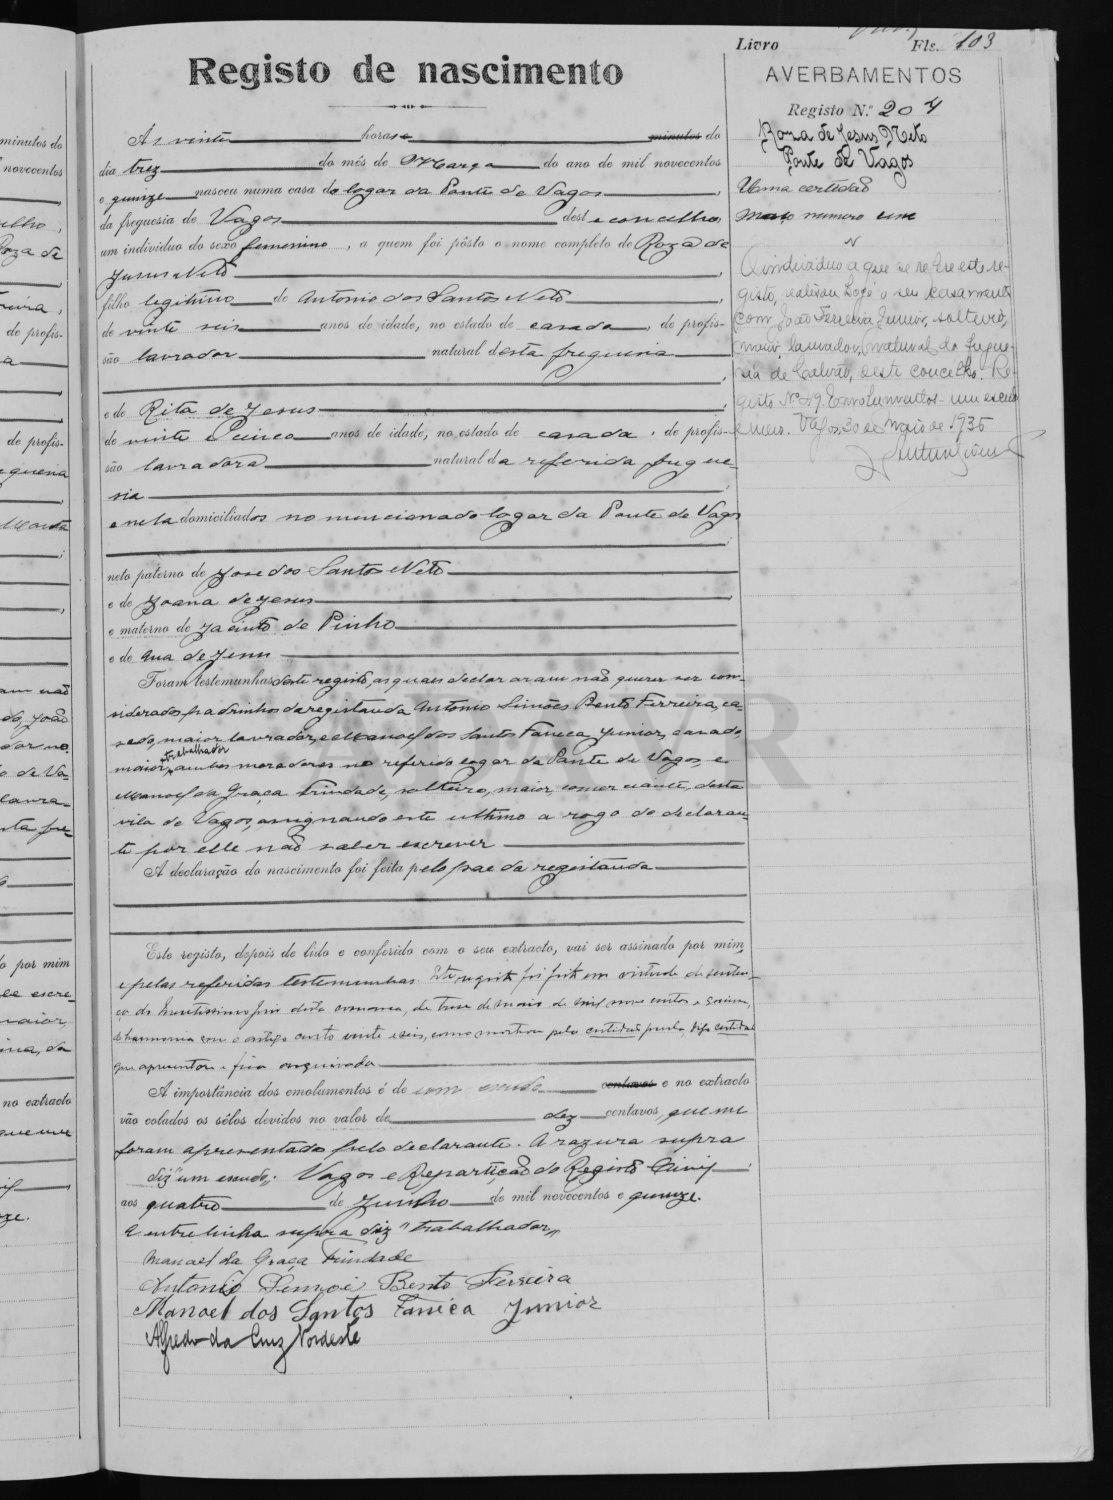 Livro Fls. 103
Registo de nascimento
Ás vinte horas e minutos do
dia trez do mês de Março do ano de mil novecentos
e quinze nasceu numa casa do logar da Ponte de Vagos,
da freguesia de Vagos deste concelho
um individuo do sexo femenino, a quem foi pôsto o nome completo de Roza de
Jesus Neto,
filho legitimo de Antonio dos Santos Neto,
de vinte seis anos de idade, no estado de casado, de profis-
são lavrador natural desta freguesia
,
e de Rita de Jesus,
de vinte e cinco anos de idade, no estado de casada, de profis-
são lavradora natural da referida fregue-
sia,
e nela domiciliados no mencionado logar da Ponte de Vagos
;
neto paterno de José dos Santos Neto
e de Joana de Jesus,
e materno de Jacinto de Pinho
e de Ana de Jesus.
Foram testemunhas deste registo, as quaes declararam não querer ser con-
siderados padrinhos da registanda Antonio Simões Bento Ferreira, ca-
sado, maior lavrador, e Manoel dos Santos Faneca Junior, casado,
trabalhador
maior, ambos moradores no referido logar da Ponte de Vagos e
Manoel da Graça Trindade, solteiro, maior, comerciante, desta
vila de Vagos, assignando este ultimo a rogo do declaran-
te por elle não saber escrever
A declaração do nascimento foi feita pelo pae da registanda
Este registo, depois de lido e conferido com o seu extracto, vai ser assinado por mim,
e pelas referidas testemunhas. Este registo foi feito em virtude de senten-
ça do Meritissimo Juiz desta comarca, de treze de Maio de mil nove centos e quinze,
e harmonia com o artigo cento vinte e seis, como mostrou pela certidão
que apresentou e fica arquivada
A importância dos emolumentos é de um escudo centavos e no extracto
vão colados os sêlos devidos no valor de dez centavos, que me
foram apresentados pelo declarante. A razura supra
diz "um escudo". Vagos e Repartição do Registo Civil,
aos quatro de Junho de mil novecentos e quinze.
A entrelinha supra diz "trabalhador"
Manoel da Graça Trindade
Antonio Simoi Bento Ferreira
Manoel dos Santos Faneca Junior
Alfredo da Cruz Nordeste
AVERBAMENTOS
Registo N.º 204
Roza de Jesus Neto
Ponte de Vagos
Uma certidão
maço numero um
N
O individuo a que se refere este re-
gisto, realisou hoje o seu casamento
com João Ferreira Junior, solteiro,
maior, lavrador, natural da fregue-
sia de Calvão, deste concelho. Re-
gisto Nº 59. Emolumentos - um escudo
e meio. Vagos, 30 de Maio de 1935
ADAVR